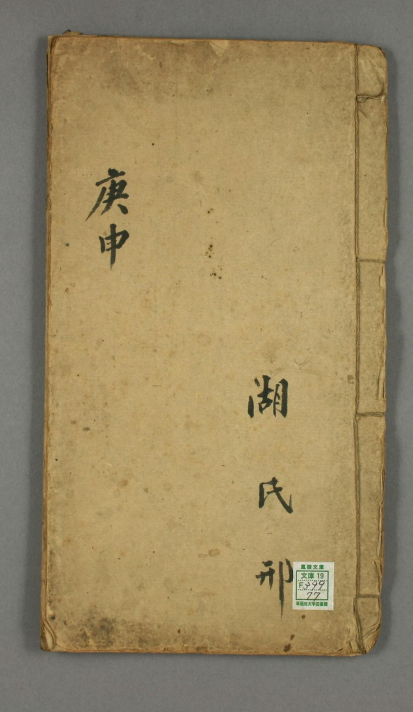 庚申
湖氏邢
風陵文庫
文庫19
F399
77
早稲田大学図書館